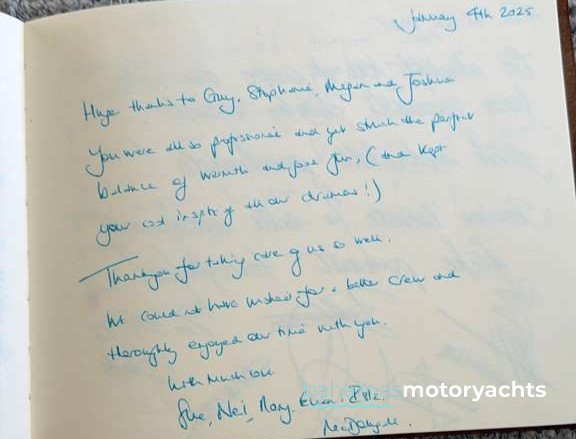 January 4th 2025
Huge thanks to Guy, Stephanie, Megan and Joshua
You were all so professional and yet struck the perfect
balance of warmth and good fun, (and kept
your cool inspite of all our dramas!)
Thankyou for taking care of us so well.
We could not have wished for a better crew and
thoroughly enjoyed our time with you.
With much love
Sue, Neil, Rory, Euan &
motoryachts